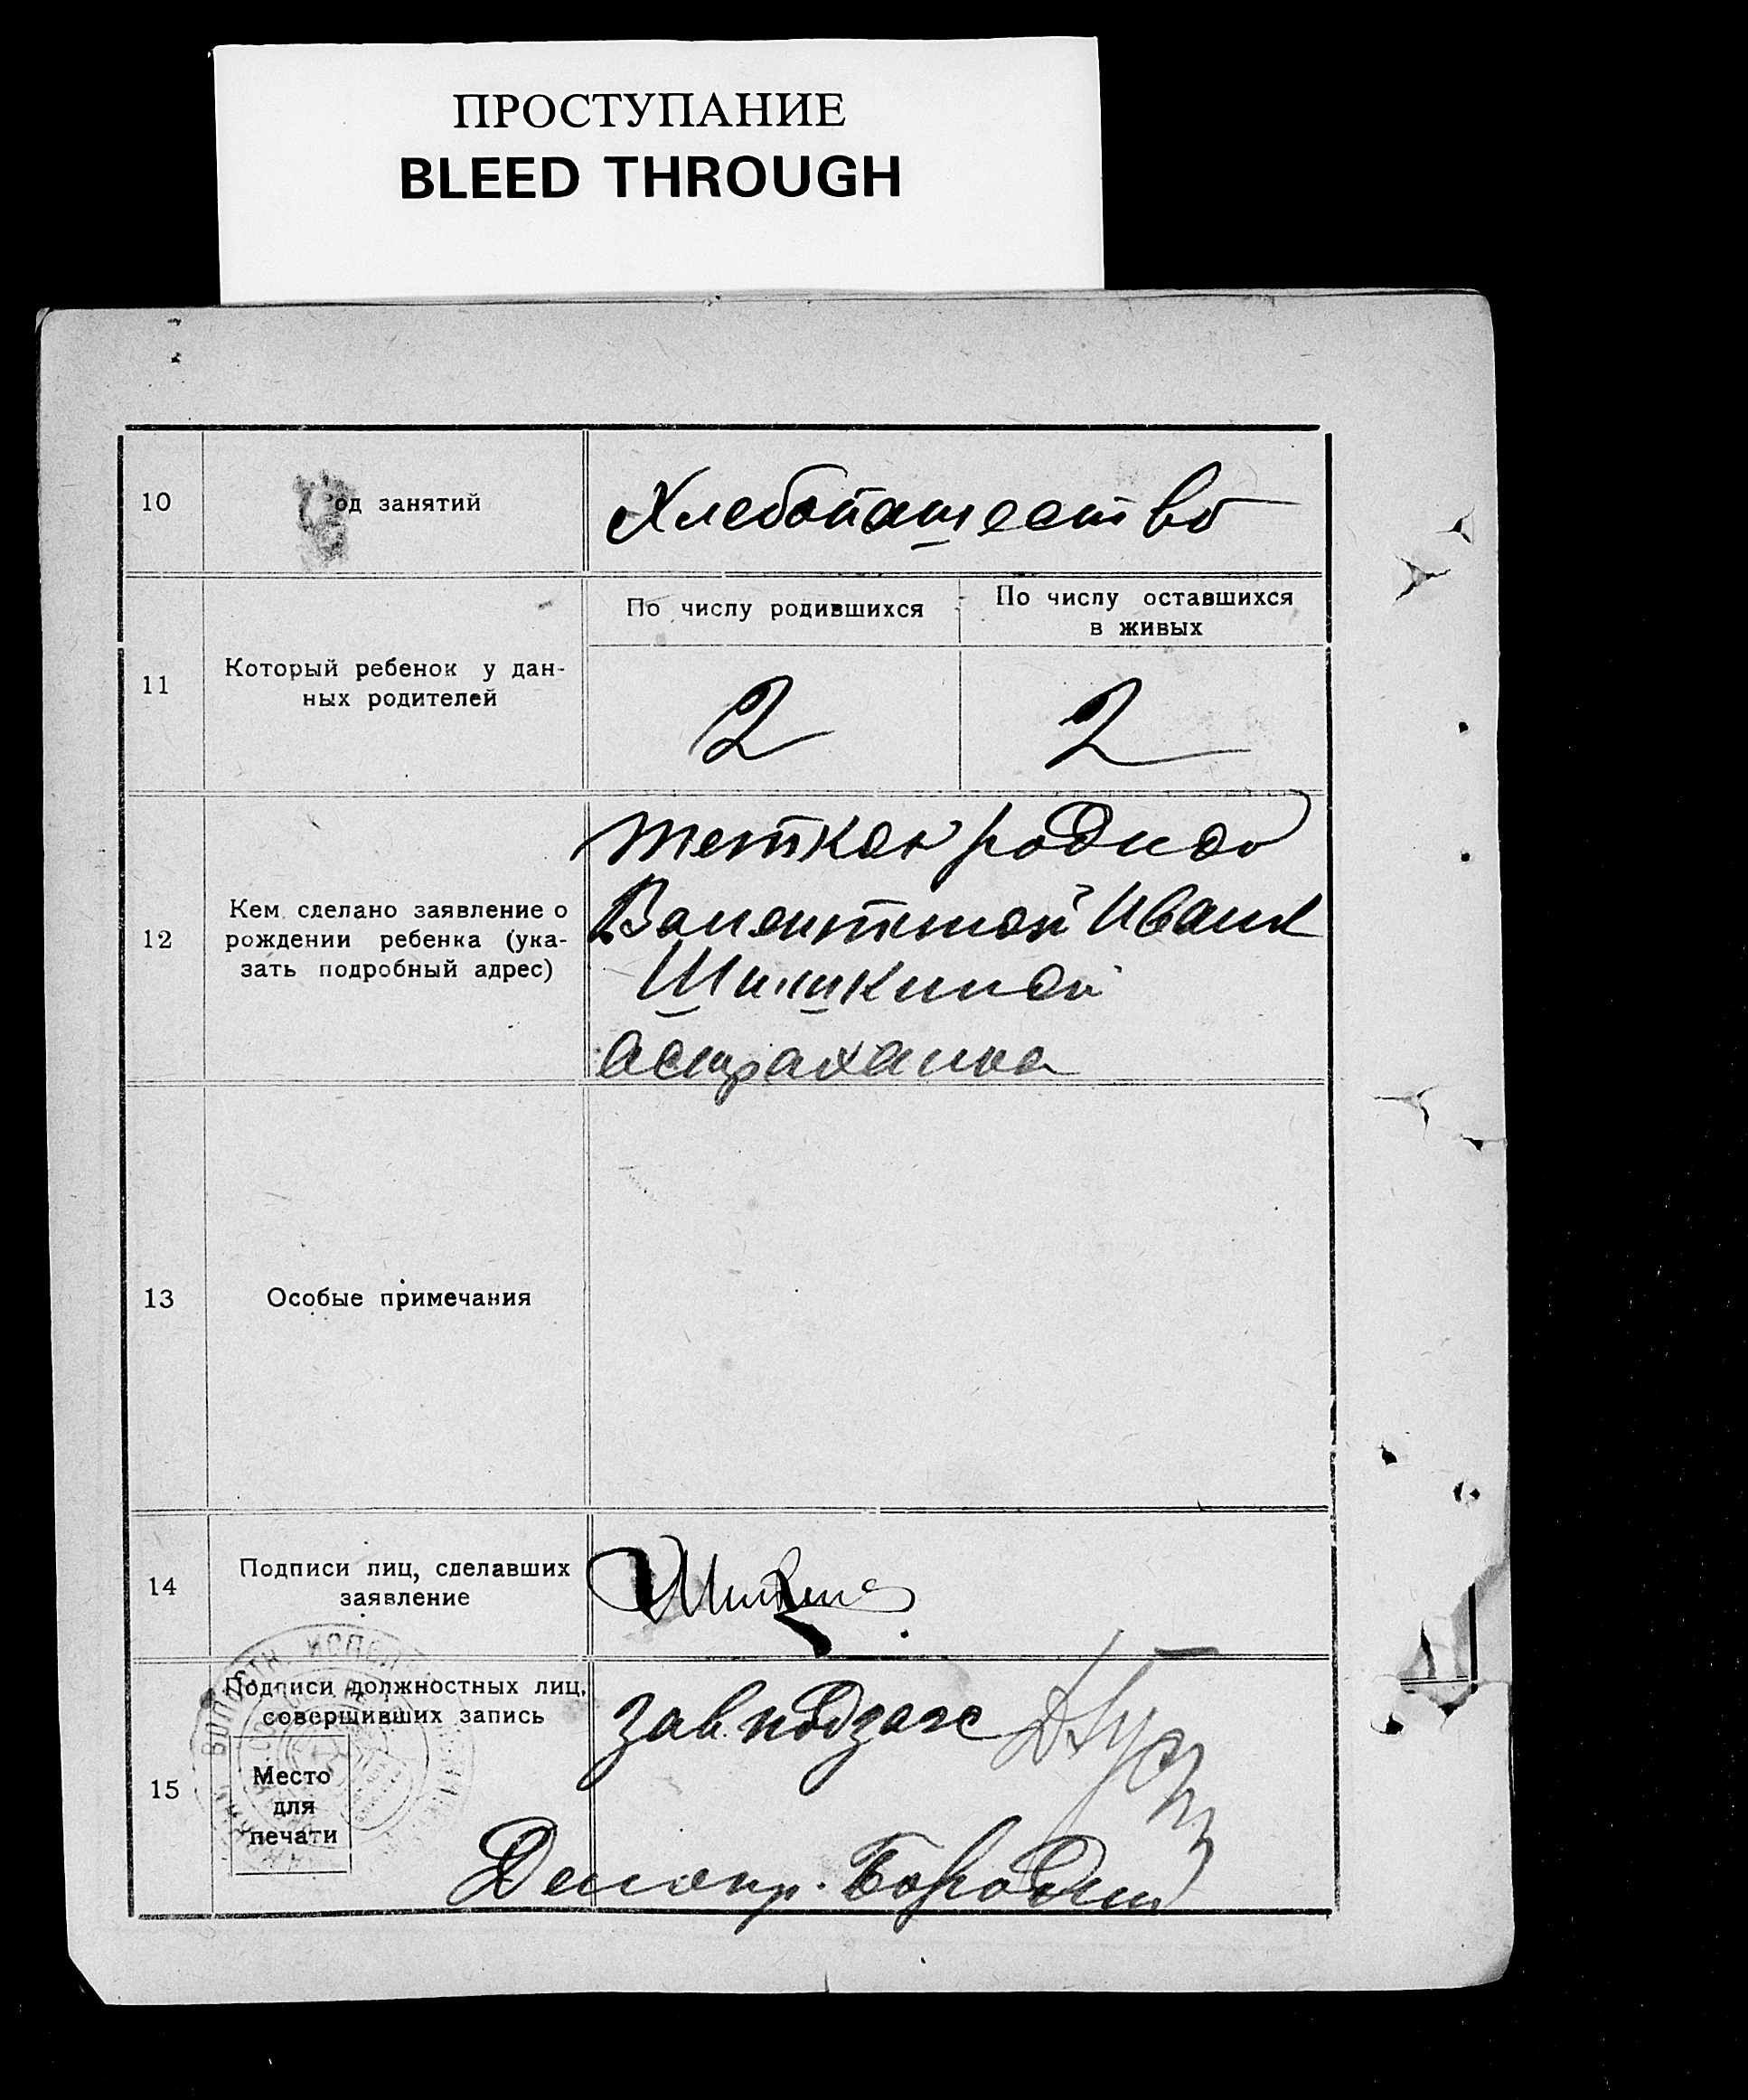 ПРОСТУПАНИЕ
BLEED THROUGH
10
од занятий
Хлебопашество
11
Который ребенок у дан-
ных родителей
По числу родившихся
По числу оставшихся
в живых
2
2
12
Кем сделано заявление о
рождении ребенка (ука-
зать подробный адрес)
теткой родной
Валентиной Иван
Шишкиной
Астраханка
13
Особые примечания
14
Подписи лиц, сделавших
заявление
15
Подписи должностных лиц,
совершивших запись
Место
для
печати
Зав подзагс
Делопр. Бородин